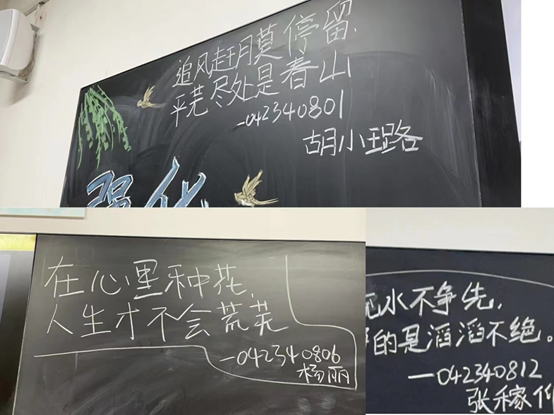 追风赶月莫停留,
平芜尽处是春山
—042340801
胡小璐
强化
在心里种花,
人生才不会荒芜
—042340806
杨丽
流水不争先,
的是滔滔不绝。
—042340812
张稼